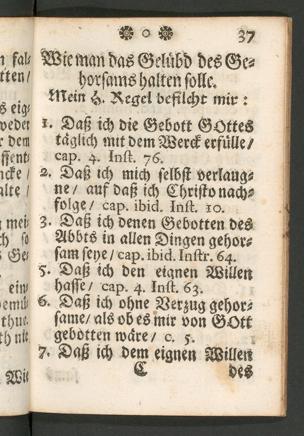 37
Wie man das Gelübd des Ge-
horsams halten solle.
Mein H. Regel befilcht mir:
1. Daß ich die Gebott GOttes
täglich mit dem Werck erfülle/
cap. 4. Inst. 76.
2. Daß ich mich selbst verlaug-
ne/ auf daß ich Christo nach-
folge/ cap. ibid. Inst. 10.
3. Daß ich denen Gebotten des
Abbts in allen Dingen gehor-
sam seye/ cap. ibid. Instr. 64.
5. Daß ich den eignen Willen
hasse/ cap. 4. Inst. 63.
6. Daß ich ohne Verzug gehor-
same/ als ob es mir von GOtt
gebotten wäre/ c. 5.
7. Daß ich dem eignen Willen
C des